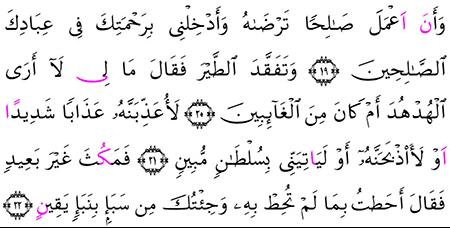 وَأَنَ اَعْمَلَ صَٰلِحًا تَرْضَىٰهُ وَأَدْخِلْنِى بِرَحْمَتِكَ فِى عِبَادِكَ
اَ۬لصَّٰلِحِينَ ۝١٩ وَتَفَقَّدَ اَ۬لطَّيْرَ فَقَالَ مَا لِى لَآ أَرَى
اَ۬لْهُدْهُدَ أَمْ كَانَ مِنَ اَ۬لْغَآئِبِينَ ۝٢٠ لَأُعَذِّبَنَّهُۥ عَذَابًا شَدِيدًا
اَوْ لَأَاْذْبَحَنَّهُۥ أَوْ لَيَاتِيَنِّى بِسُلْطَٰنٍ مُّبِينٍ ۝٢١ فَمَكُثَ غَيْرَ بَعِيدٍ
فَقَالَ أَحَطتُ بِمَا لَمْ تُحِطْ بِهِۦ وَجِئْتُكَ مِن سَبَإٍۢ بِنَبَإٍ يَقِينٍ ۝٢٢